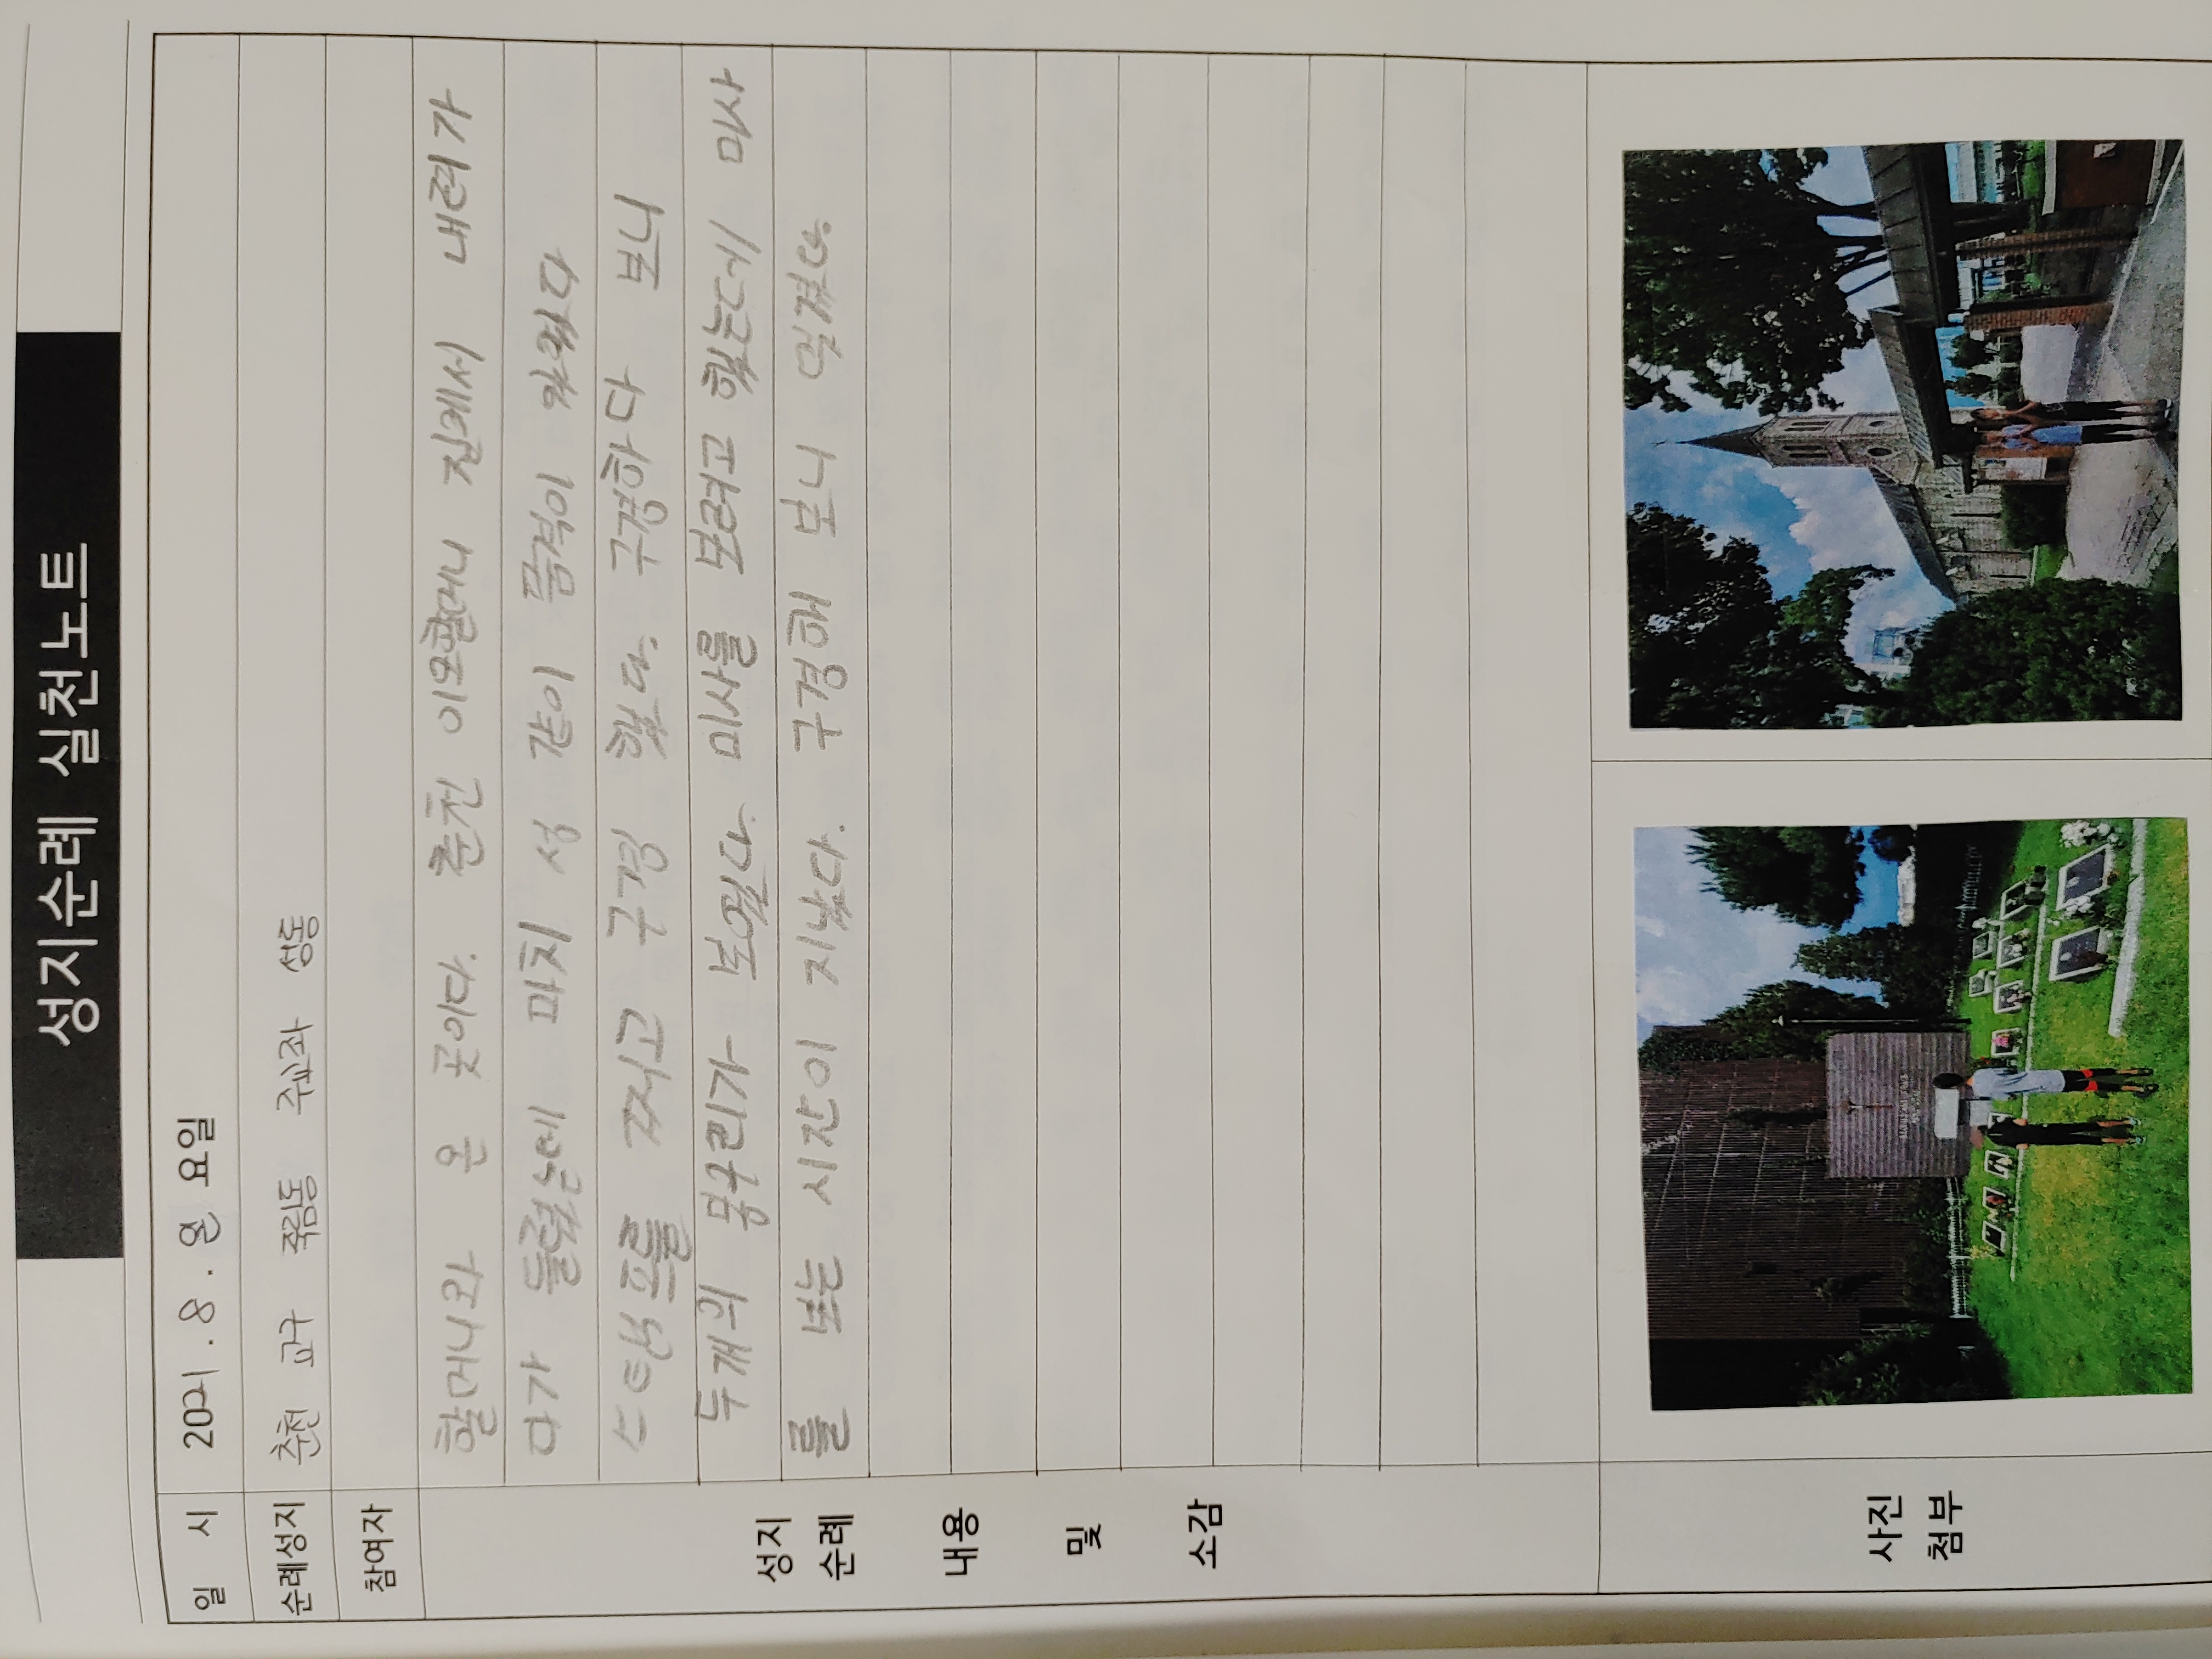 성지순례 실천노트
일 시 2021. 8. 월 요일
순례성지 춘천 교구 죽림동 주교좌 성동
참여자
할머니와 온 곳이다. 춘천 이모할머니 집에서 내려가
다가 들렸는데 마치 성 같이 품격이
스탬프를 찍고 구경 했다. 구경하다 보니
두개의 봉우리가 보였다. 미사를 보려고 했는데 미사
를 보는 시간이 지났다. 구경해 보니
성지
순례
내용
및
소감
사진
첨부